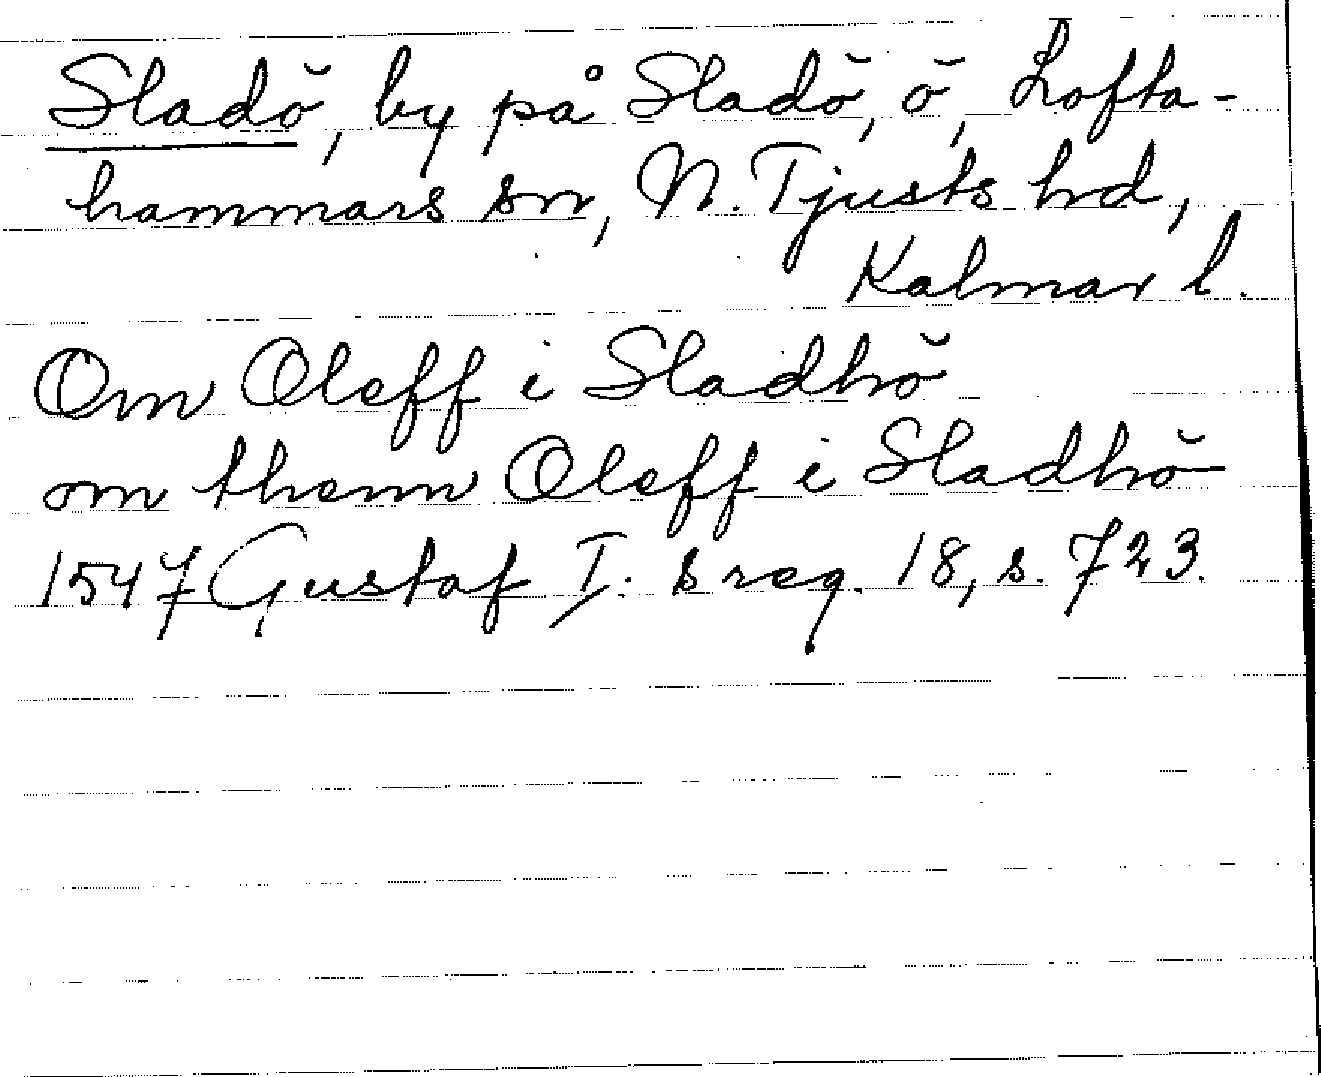 Sladö, by på Sladö, ö, Lofta-
hammars sn, N. Tjusts hd,
Kalmar l.
Om Oleff i Sladhö
om thenn Oleff i Sladhö
1547 Gustaf I:s reg. 18, s. 723.